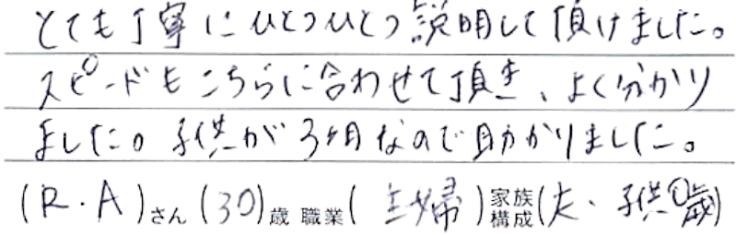 とても丁寧にひとつひとつ説明して頂けました。
スピードもこちらに合わせて頂き、よく分かり
ました。子供が3ヶ月なので助かりました。
(R.A)さん(30)歳 職業(主婦)家族構成(夫・子供0歳)